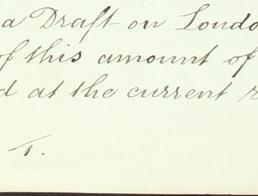 a Draft on Londo
of this amount of
d at the current r
T.